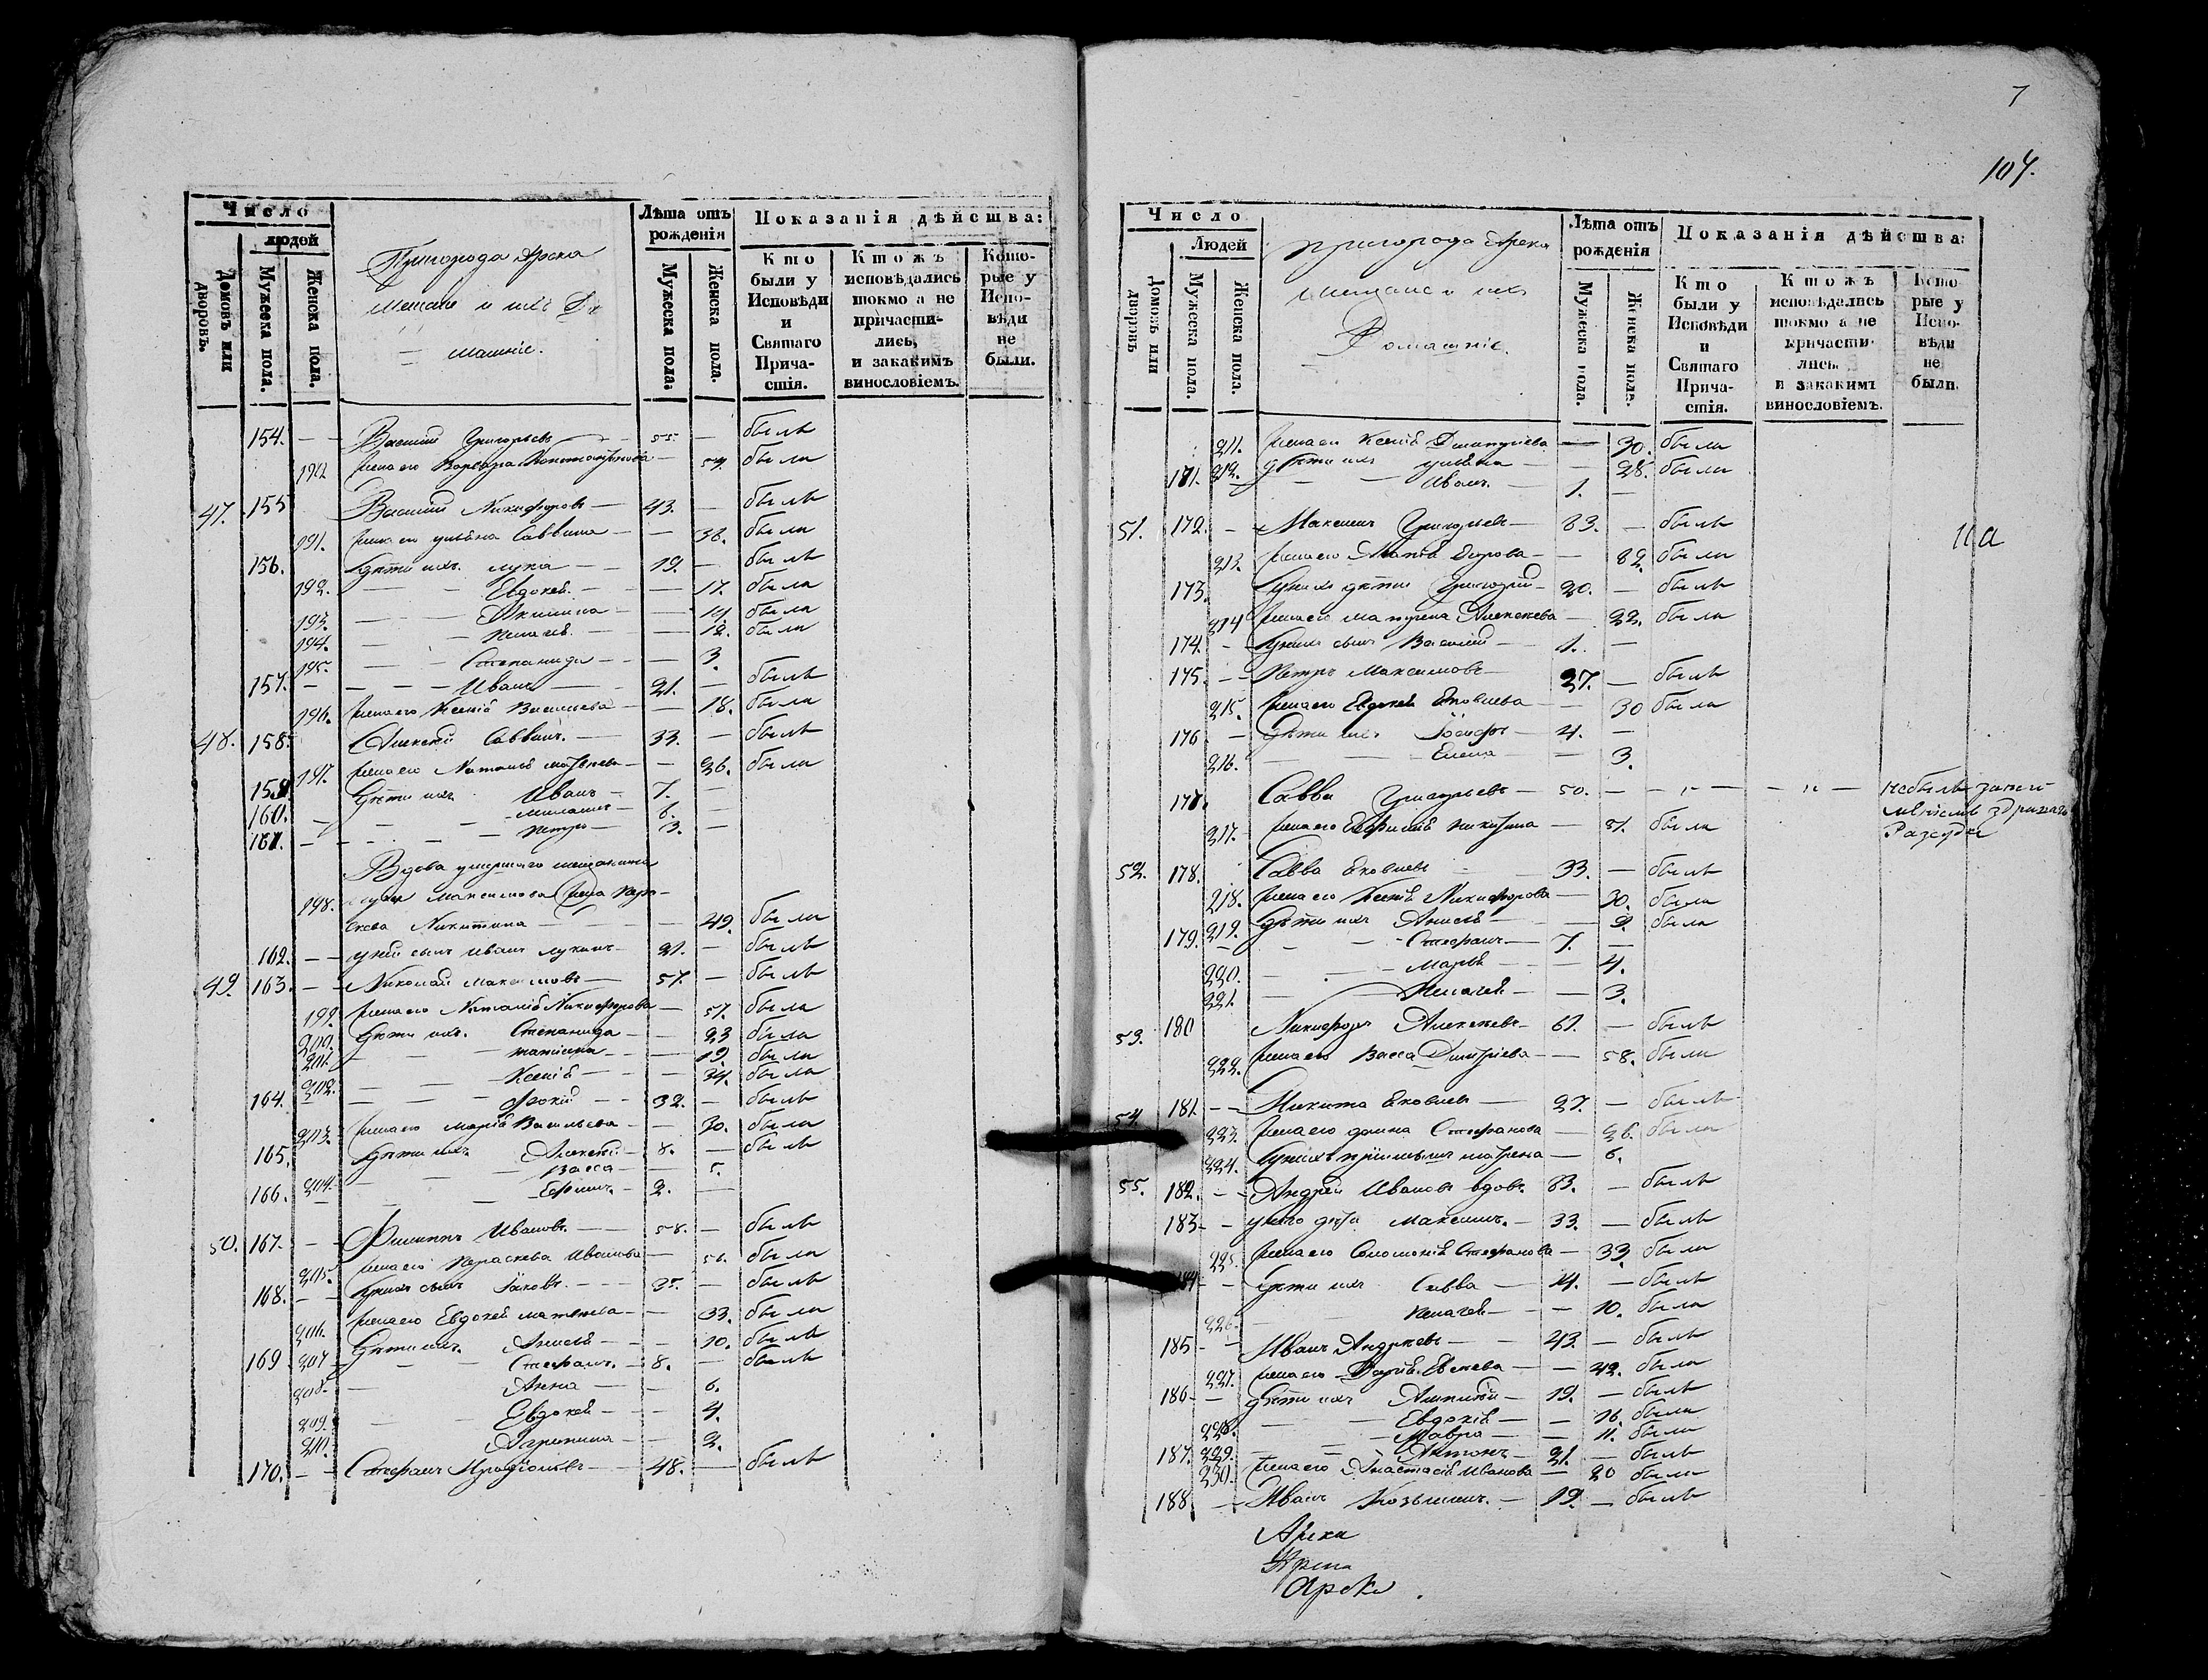 Число
людей
Домовъ или дворовъ.
Мужеска пола.
Женска пола.
Пригорода Арска
Мещане и ихъ До
машніе.
Лѣта отъ рожденія
Мужеска пола.
Женска пола.
Показанія дѣйства:
Кто были у Исповѣди и Святаго Причастія.
Ктожъ исповѣдались токмо а не причастились, и закакимъ винословіемъ.
Которые у Исповѣди не были.
154. — — Василій Григорьевъ — 55. — былъ
190 жена его Варвара Константинова — 54. была
47. 155 Василій Никифоровъ — 43. — былъ
191. жена ег Ульяна Саввина — — 38. была
156. Дѣти ихъ. Лука — 19. — былъ
192. — — Евдокея — — 17. была
193. — — Акилина — — 14. была
194. — Пелагея — — 12. была
195. — — Степанида — — 3.
157. — — — — Иванъ — 21. — былъ
196. жена его Ксенія Васильева — — 18. была
48. 158. Алексей Саввинъ. — 33. — былъ
197. жена его Наталья Матвеева — — 36. была
159 Дѣти ихъ Иванъ — 7. —
160. — — — 6. —
161. — — — Петръ — 3. —
Вдова умершаго мещанина
198. Луки Максимова жена Парас
кева Никитина — — 49. была
162. — — у ней сынъ Иванъ Лукинъ — 21. — былъ
49. 163. — — Николай Максимовъ — 57. — былъ
199. жена его Наталія Никифорова — 57. была
200. Дѣти ихъ. Степанида — — 23 была
201. — — — — 19. была
202. — — Ксенія — — 34. была
164. — — — — 32. — былъ
203. жена его Марія Васильева — — 30. была
165. Дѣти ихъ. Алексей — 8. — былъ
204. — — Васса — — 5.
166. — — — Ефимъ. — 2. —
50. 167. — — Филиппъ Ивановъ. — — 58. — былъ
205. жена его Параскева Иванова — 56. была
168. — — у нихъ сынъ Іаковъ. — 35. — былъ
206. жена его Евдокея Матвеева — — 33. была
207. Дѣти ихъ. Анисья — — 10. была
169 — — Стефанъ. — 8. — былъ
208. — Анна — — 6.
209. — — Евдокея — — 4.
210. Агрипина — — 2.
170. — — Стефанъ — 48. — былъ
7
104.
Число
Людей
Домовъ или дворовъ
Мужеска пола.
Женска пола.
пригорода Арска
мещане и ихъ
Домашніе.
Лѣта отъ рожденія
Мужеска пола.
Женска пола.
Показанія дѣйства:
Кто были у Исповѣди и Святаго Причастія.
Ктожъ исповѣдались токмо а не причастились и закакимъ винословіемъ.
Которые у Исповѣди не были.
211. жена ег Ксенія Дмитріева — 30. была
212. Дѣти ихъ Ульяна — — 28. была
171. — — — Иванъ. — 1. —
51. 172. — Максимъ Григорьевъ — 83. — былъ
213. жена его Егорова — — 82. была
173. у нихъ дѣти Григорій — 20. — былъ
214 жена его Матрена Алексеева — 22. была
174. — — у нихъ сынъ Василій — 1. —
175. — — Петръ Максимовъ — 37. — былъ
215. жена его Евдокея Яковлева — — 30 была
176 — Дѣти ихъ Іосифъ — 4. —
216. — — Елена — 3.
177. Савва Григорьевъ — 50. — — „ — — „ — небылъ
здраваго
Разсудка
217. — жена его Никитина — 51. была
52. 178. Савва Яковлевъ — 33. — былъ
218. жена его Ксенія Никифорова — 30. была
219. Дѣти ихъ Анисья — — 9. была
179. — — — Стефанъ — 7. —
220. — — Марья — — 4.
221. — — Пелагея — — 3.
53. 180 Никифоръ Алексеевъ — 61. — былъ
222. жена его Васса Дмитріева — — 58. была
54. 181 — — Никита Яковлевъ — 27. — былъ
223. жена его Домна Стефанова — 26. была
224. у нихъ Матрена — 6.
55. 182. — — Андрей Ивановъ вдовъ. 83. — былъ
183 — у него дѣти Максимъ. — 33. — былъ
225. жена его Соломонія Стефанова — 33. была
184 — — Дѣти ихъ Савва — 14. — былъ
226. Пелагея — — 10. была
185 — — Иванъ Андреевъ — — 43. — былъ
227. жена его Дарья — — 42. была
186 — — Дѣти ихъ — 19. — былъ
228. — — Евдокія — — 16. была
229. — — Мавра — — 11. была
187. — — Антонъ — 21. — былъ
230. жена его Анастасія Иванова — 20 была
188 — — Иванъ Козьминъ. — 19. — былъ
Арска
Арска
Арска